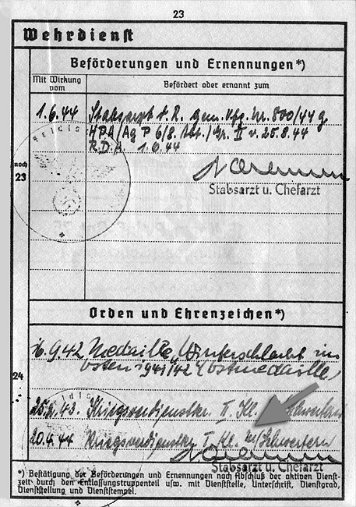 23
Wehrdienst
Beförderungen und Ernennungen*)
Mit Wirkung
vom
Befördert oder ernannt zum
1.6.44 Stabsarzt d. R. gem. Vfg. Nr. 800/44 g
HPA/Ag P 6/8. Abt./ v. 25.8.44
R.D.A. 1.6.44
noch
23
Stabsarzt u. Chefarzt
Orden und Ehrenzeichen*)
16.9.42 Medaille „Winterschlacht im
Osten 1941/42" Ostmedaille
24
25.2.43. Kriegsverdienstkr. II. Kl. Schwertern
20.4.44 Kriegsverdienstkr. I. Kl. m/Schwertern
Stabsarzt u. Chefarzt
*) Bestätigung der Beförderungen und Ernennungen nach Abschluß der aktiven Dienst-
zeit durch den Entlassungstruppenteil usw. mit Dienststelle, Unterschrift, Dienstgrad,
Dienststellung und Dienststempel.